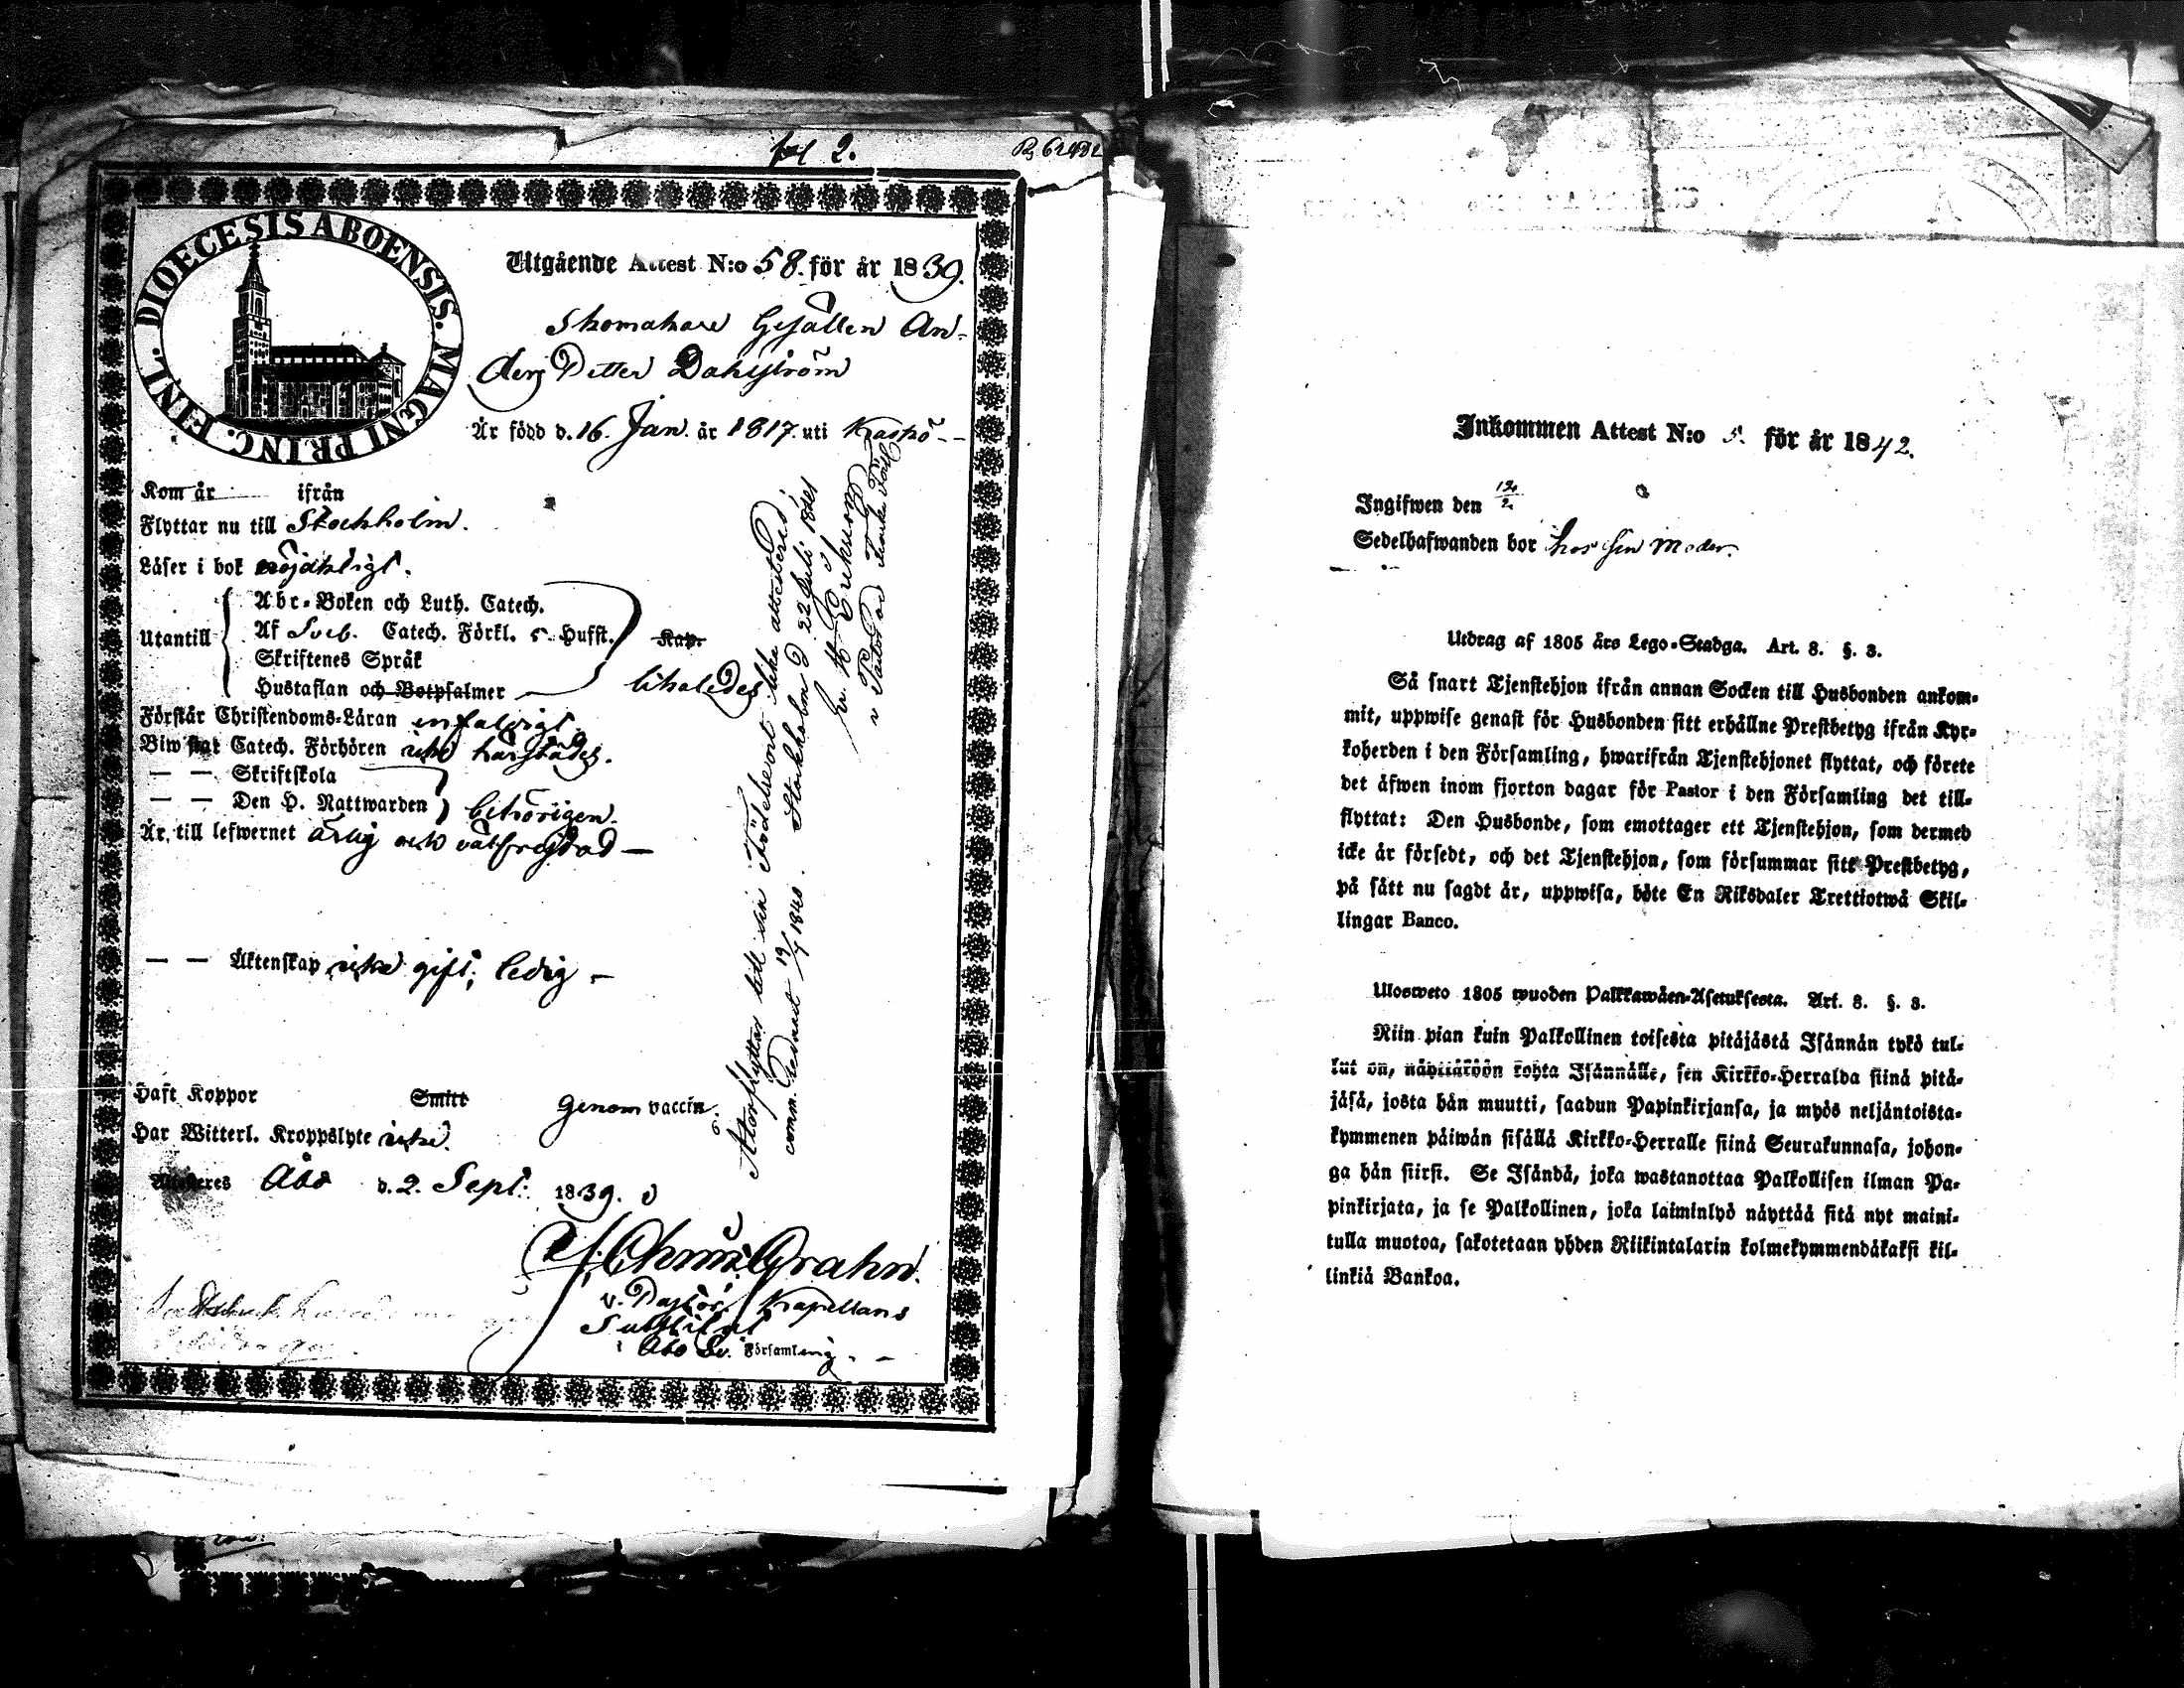 fol 2.
DIOECESIS ABOENSIS. MAGNI PRINC. FINL.
Utgående Attest N:o 58. för år 1839.
Skomakare Gesällen An-
ders Petter Dahlström
Är född d. 16. Jan. år 1817. uti Kraskö--
Kom år ifrån
Flyttar nu till Stockholm.
Läser i bok nöjaktigt.
Utantill
Abc-Boken och Luth. Catech.
Af Sveb. Catech. Förkl. 5 Hufst. Kap.
Skriftenes Språk
Hustaflan och Botpsalmer
likaledes
Förstår Christendoms-Läran enfaldigt.
Biwistat Catech. Förhören icke härstädes.
— — Skriftskola
— — Den H. Nattwarden behörigen.
Är till lefwernet ärlig och välfrejdad —
— — Äktenskap icke gift; ledig -
Haft Koppor Smitt genom vaccin.
Har Witterl. Kroppslyte icke.
Attesteres Åbo d. 2. Sept. 1839.
Grahn.
v. Pastor, Kapellans
Substitut
i Åbo Sv. Församling. -
Återflyttar till sin Födelseort lika attesterad;
comm. sednast 19/4 1840. Stockholm d 22 Juli 1841
H Erikson
v Pastor
Inkommen Attest N:o 5. för år 1842.
Ingifwen den 12/2
Sedelhafwanden bor hos sin Moder.
Utdrag af 1805 års Lego-Stadga. Art. 8. §. 3.
Så snart Tjenstehjon ifrån annan Socken till Husbonden ankom-
mit, uppwise genast för Husbonden sitt erhållne Prestbetyg ifrån Kyr-
koherden i den Församling, hwarifrån Tjenstehjonet flyttat, och förete
det äfwen inom fjorton dagar för Pastor i den Församling det till-
flyttat: Den Husbonde, som emottager ett Tjenstehjon, som dermed
icke är försedt, och det Tjenstehjon, som försummar sitt Prestbetyg,
på sätt nu sagdt är, uppwisa, böte En Riksdaler Trettiotwå Skil-
lingar Banco.
Ulosweto 1805 wuoden Palkkawäen-Asetuksesta. Art. 8. §. 3.
Niin pian kuin Palkollinen toisesta pitäjästä Isännän tykö tul-
lut on, näyttäköön kohta Isännälle, sen Kirkko-Herralda siinä pitä-
jäsä, josta hän muutti, saadun Papinkirjansa, ja myös neljäntoista-
kymmenen päiwän sisällä Kirkko-Herralle siinä Seurakunnasa, johon-
ga hän siirsi. Se Isändä, joka wastanottaa Palkollisen ilman Pa-
pinkirjata, ja se Palkollinen, joka laiminlyö näyttää sitä nyt maini-
tulla muotoa, sakotetaan yhden Riikintalarin kolmekymmendäkaksi kil-
linkiä Bankoa.